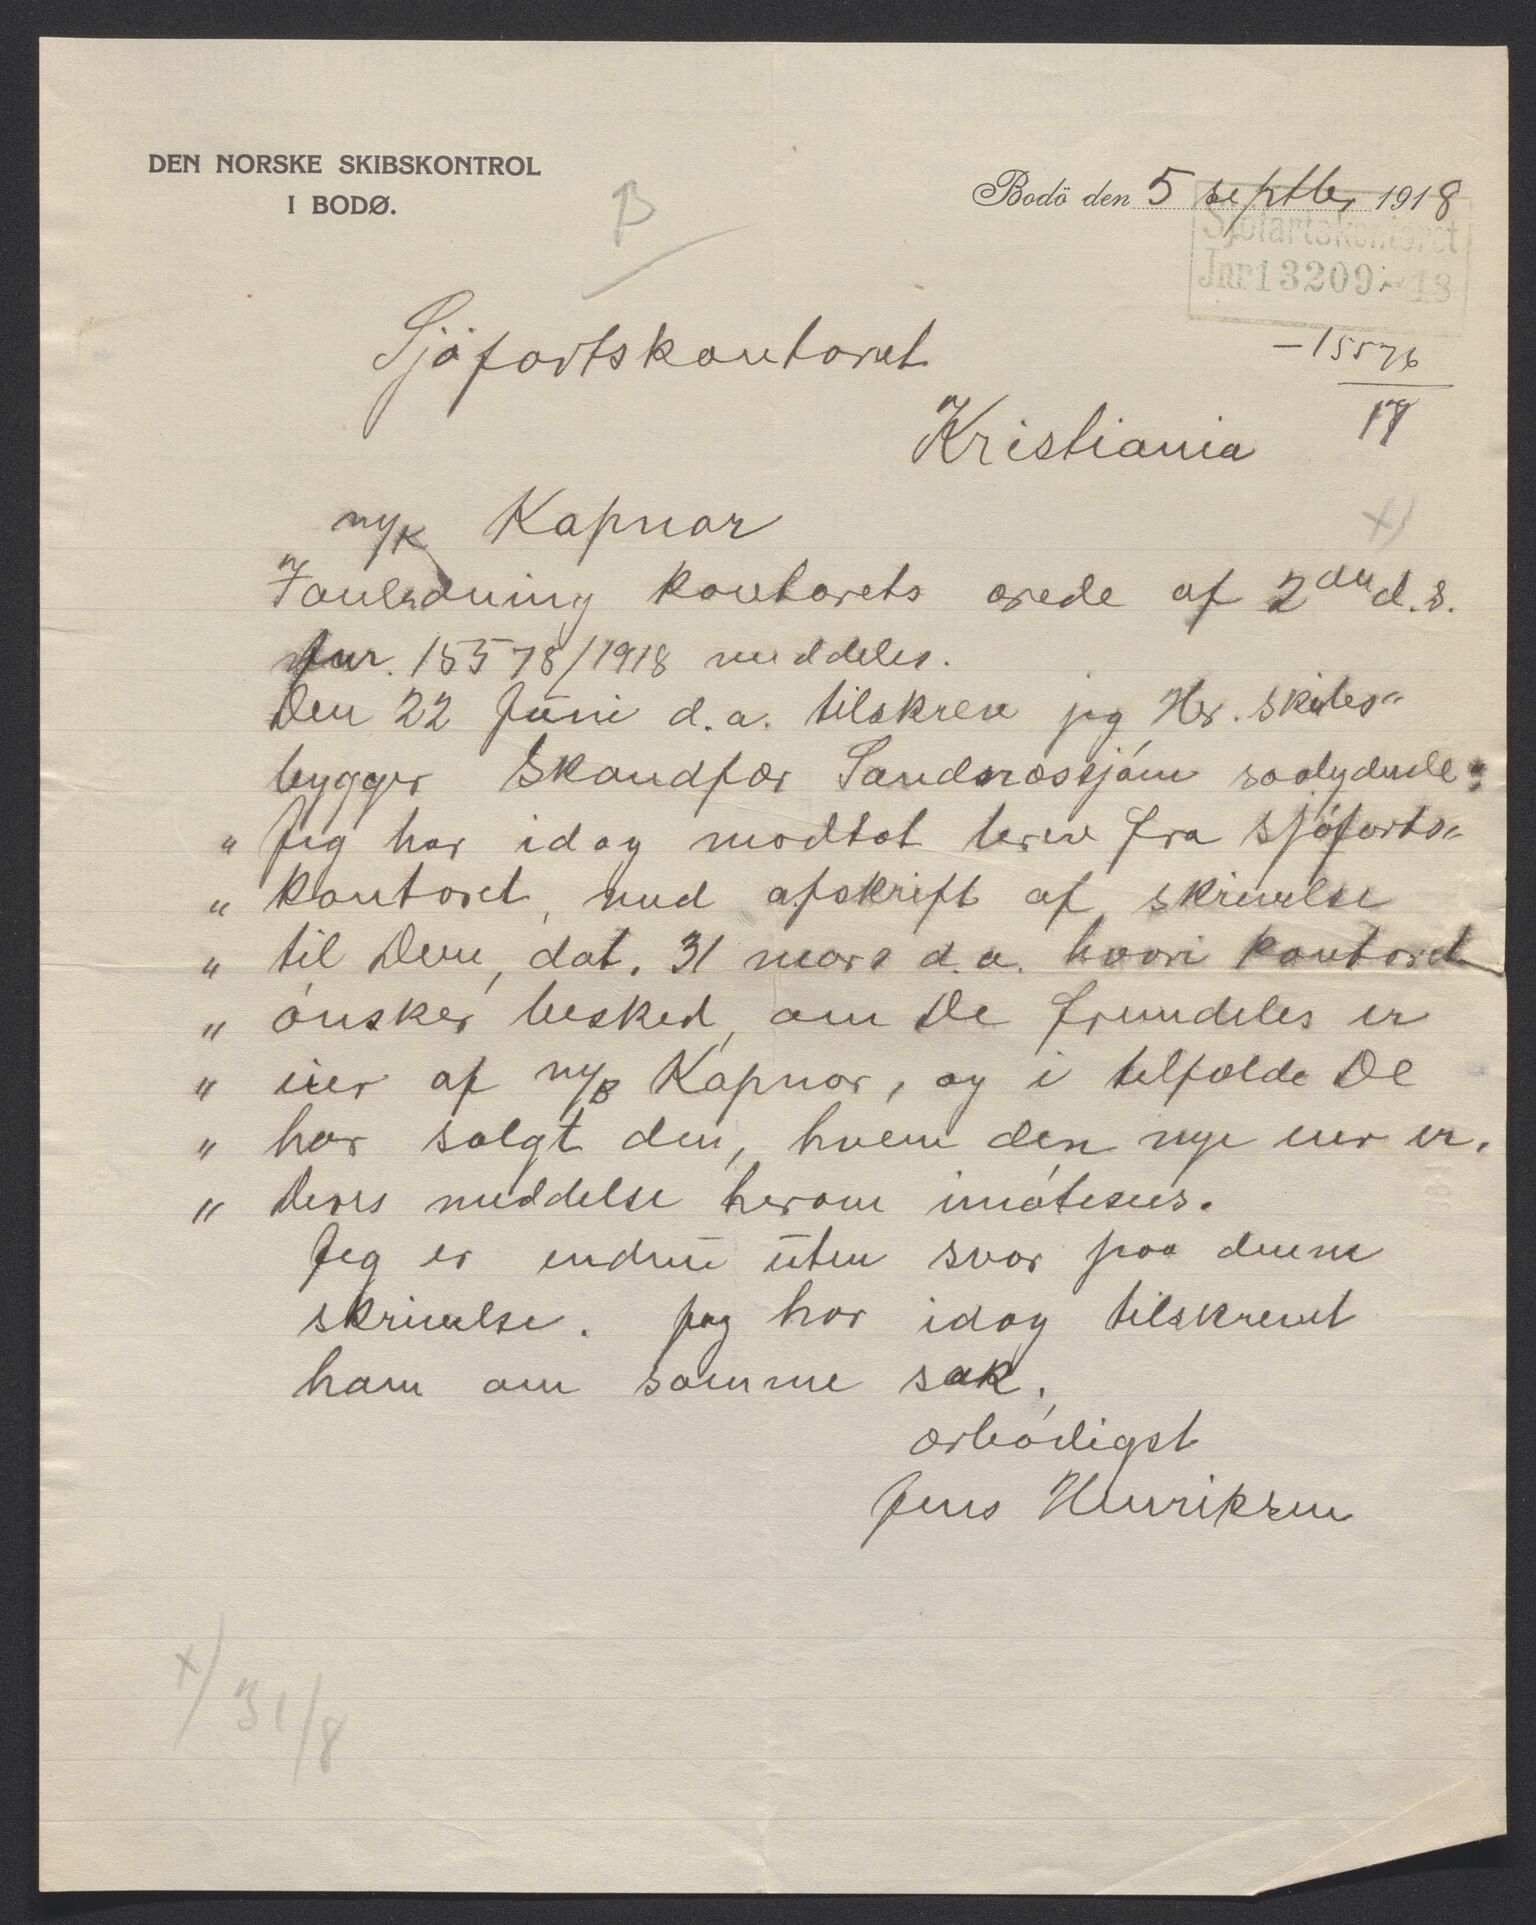 DEN NORSKE SKIBSKONTROL
I BODØ.
B
Bodö den 5 septbr 1918
Sjøfartskontoret
Jnr 13209 18
Sjöfartskontoret
- 15576
17
Kristiania
m/k Kapnor
x)
I anledning kontorets ærede af 2den d.s.
Jnr. 15578/1918 meddeles.
Den 22 Juni d.a. tilskrev jeg Hr. skibs-
bygger Skandfær Sandnæssjöen saalydende:
" Jeg har idag modtat brev fra sjöfarts-
" kontoret, med afskrift af skrivelse
" til Dem, dat. 31 mars d.a. hvori kontoret
" önsker besked, om De fremdeles er
" eier af m/k Kapnor, og i tilfælde De
" har solgt den, hvem den nye eier er.
" Deres meddelse herom imötesees.
Jeg er endnu uten svar paa denne
skrivelse. Jeg har idag tilskrevet
ham om samme sak.
ærbödigst
Jens Henriksen
x) 31/8